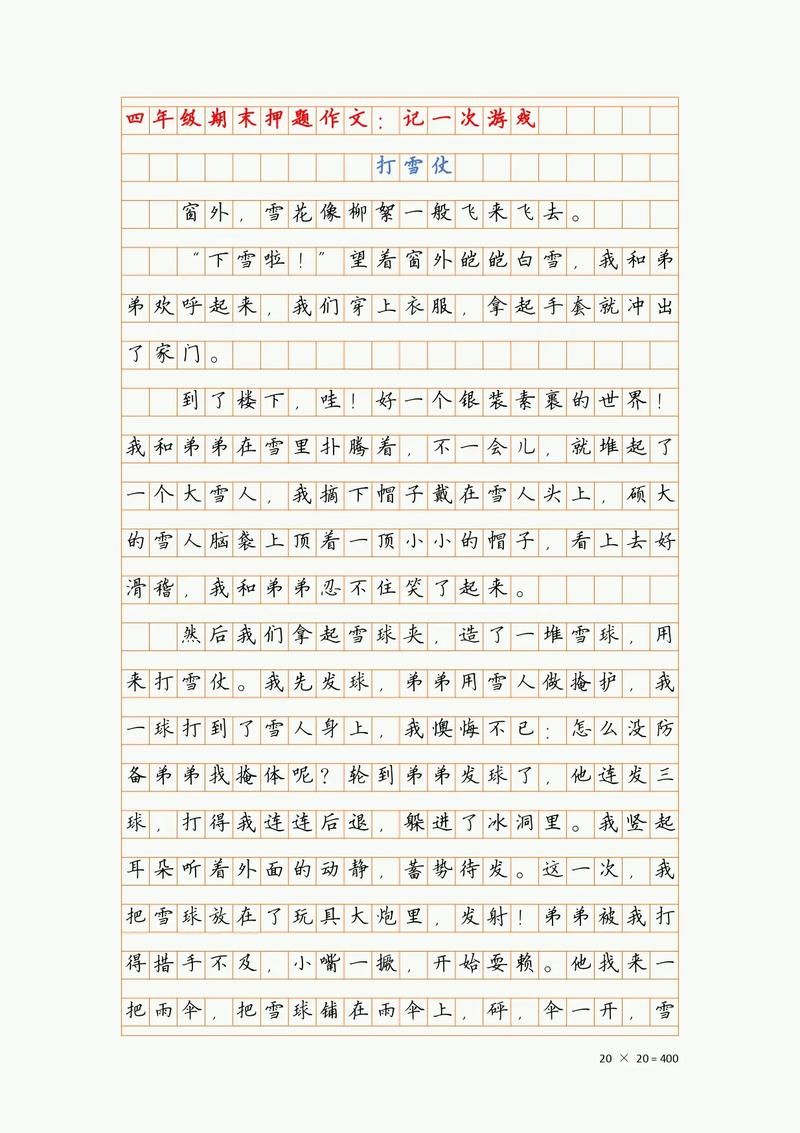 四年级期末押题作文：记一次游戏
打雪仗
窗外，雪花像柳絮一般飞来飞去。
“下雪啦！”望着窗外皑皑白雪，我和弟
弟欢呼起来，我们穿上衣服，拿起手套就冲出
了家门。
到了楼下，哇！好一个银装素裹的世界！
我和弟弟在雪里扑腾着，不一会儿，就堆起了
一个大雪人，我摘下帽子戴在雪人头上，硕大
的雪人脑袋上顶着一顶小小的帽子，看上去好
滑稽，我和弟弟忍不住笑了起来。
然后我们拿起雪球夹，造了一堆雪球，用
来打雪仗。我先发球，弟弟用雪人做掩护，我
一球打到了雪人身上，我懊悔不已：怎么没防
备弟弟找掩体呢？轮到弟弟发球了，他连发三
球，打得我连连后退，躲进了冰洞里。我竖起
耳朵听着外面的动静，蓄势待发。这一次，我
把雪球放在了玩具大炮里，发射！弟弟被我打
得措手不及，小嘴一撅，开始耍赖。他找来一
把雨伞，把雪球铺在雨伞上，砰，伞一开，雪
20 × 20=400